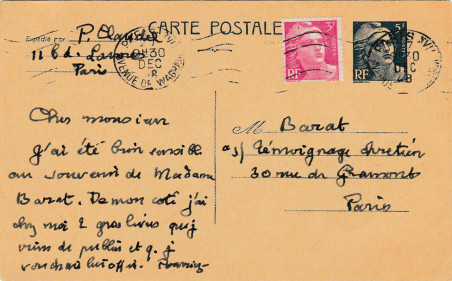 CARTE POSTALE
Expédié par P. Claudel
11 bd. Lannes
Paris
3F
RF
5F
RF
PARIS XVI
0H30
DEC
AVENUE DE WAGRAM
Cher monsieur
J'ai été bien sensible
au souvenir de Madame
Barat. De mon coté j'ai
chez moi 2 gros livres que j
viens de publier et q. j
voudrais lui offrir.
M. Barat
a/s Témoignage chretien
30 rue de Gramont
Paris